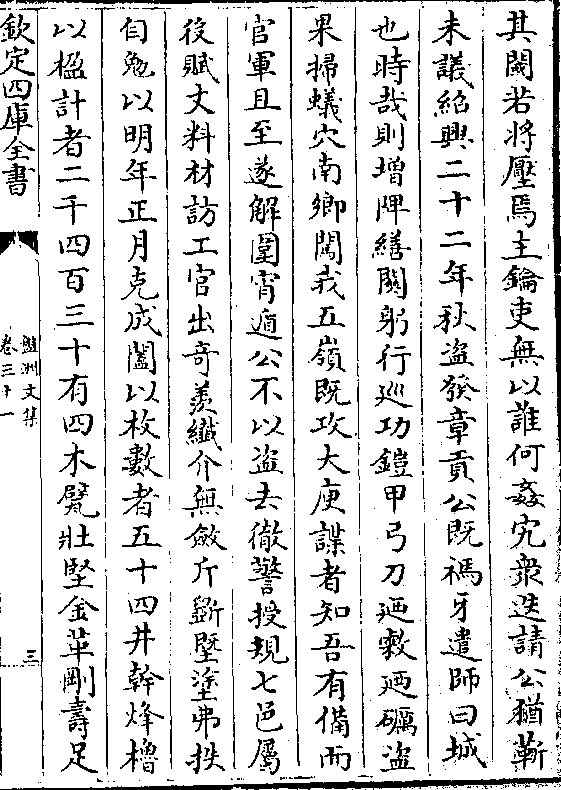 其闑若將壓焉主鑰吏無以誰何姦宄衆迭請公猶蘄
未議紹興二十二年秋盜發章貢公既禡牙遣師曰城
也時哉則增陴繕闗躬行廵功鎧甲弓刀廼敹廼礪盜
果掃蟻穴南鄉闖我五嶺既攻大庾諜者知吾有備而
官軍且至遂解圍宵遁公不以盜去徹警授規七邑屬
役賦丈料材訪工官出奇羨纎介無斂斤斲塈塗弗抶
自勉以明年正月克成闔以枚數者五十四井幹烽櫓
以楹計者二千四百三十有四木甓壯堅金革剛壽足
欽定四庫全書
盤洲文集
卷三十一
三